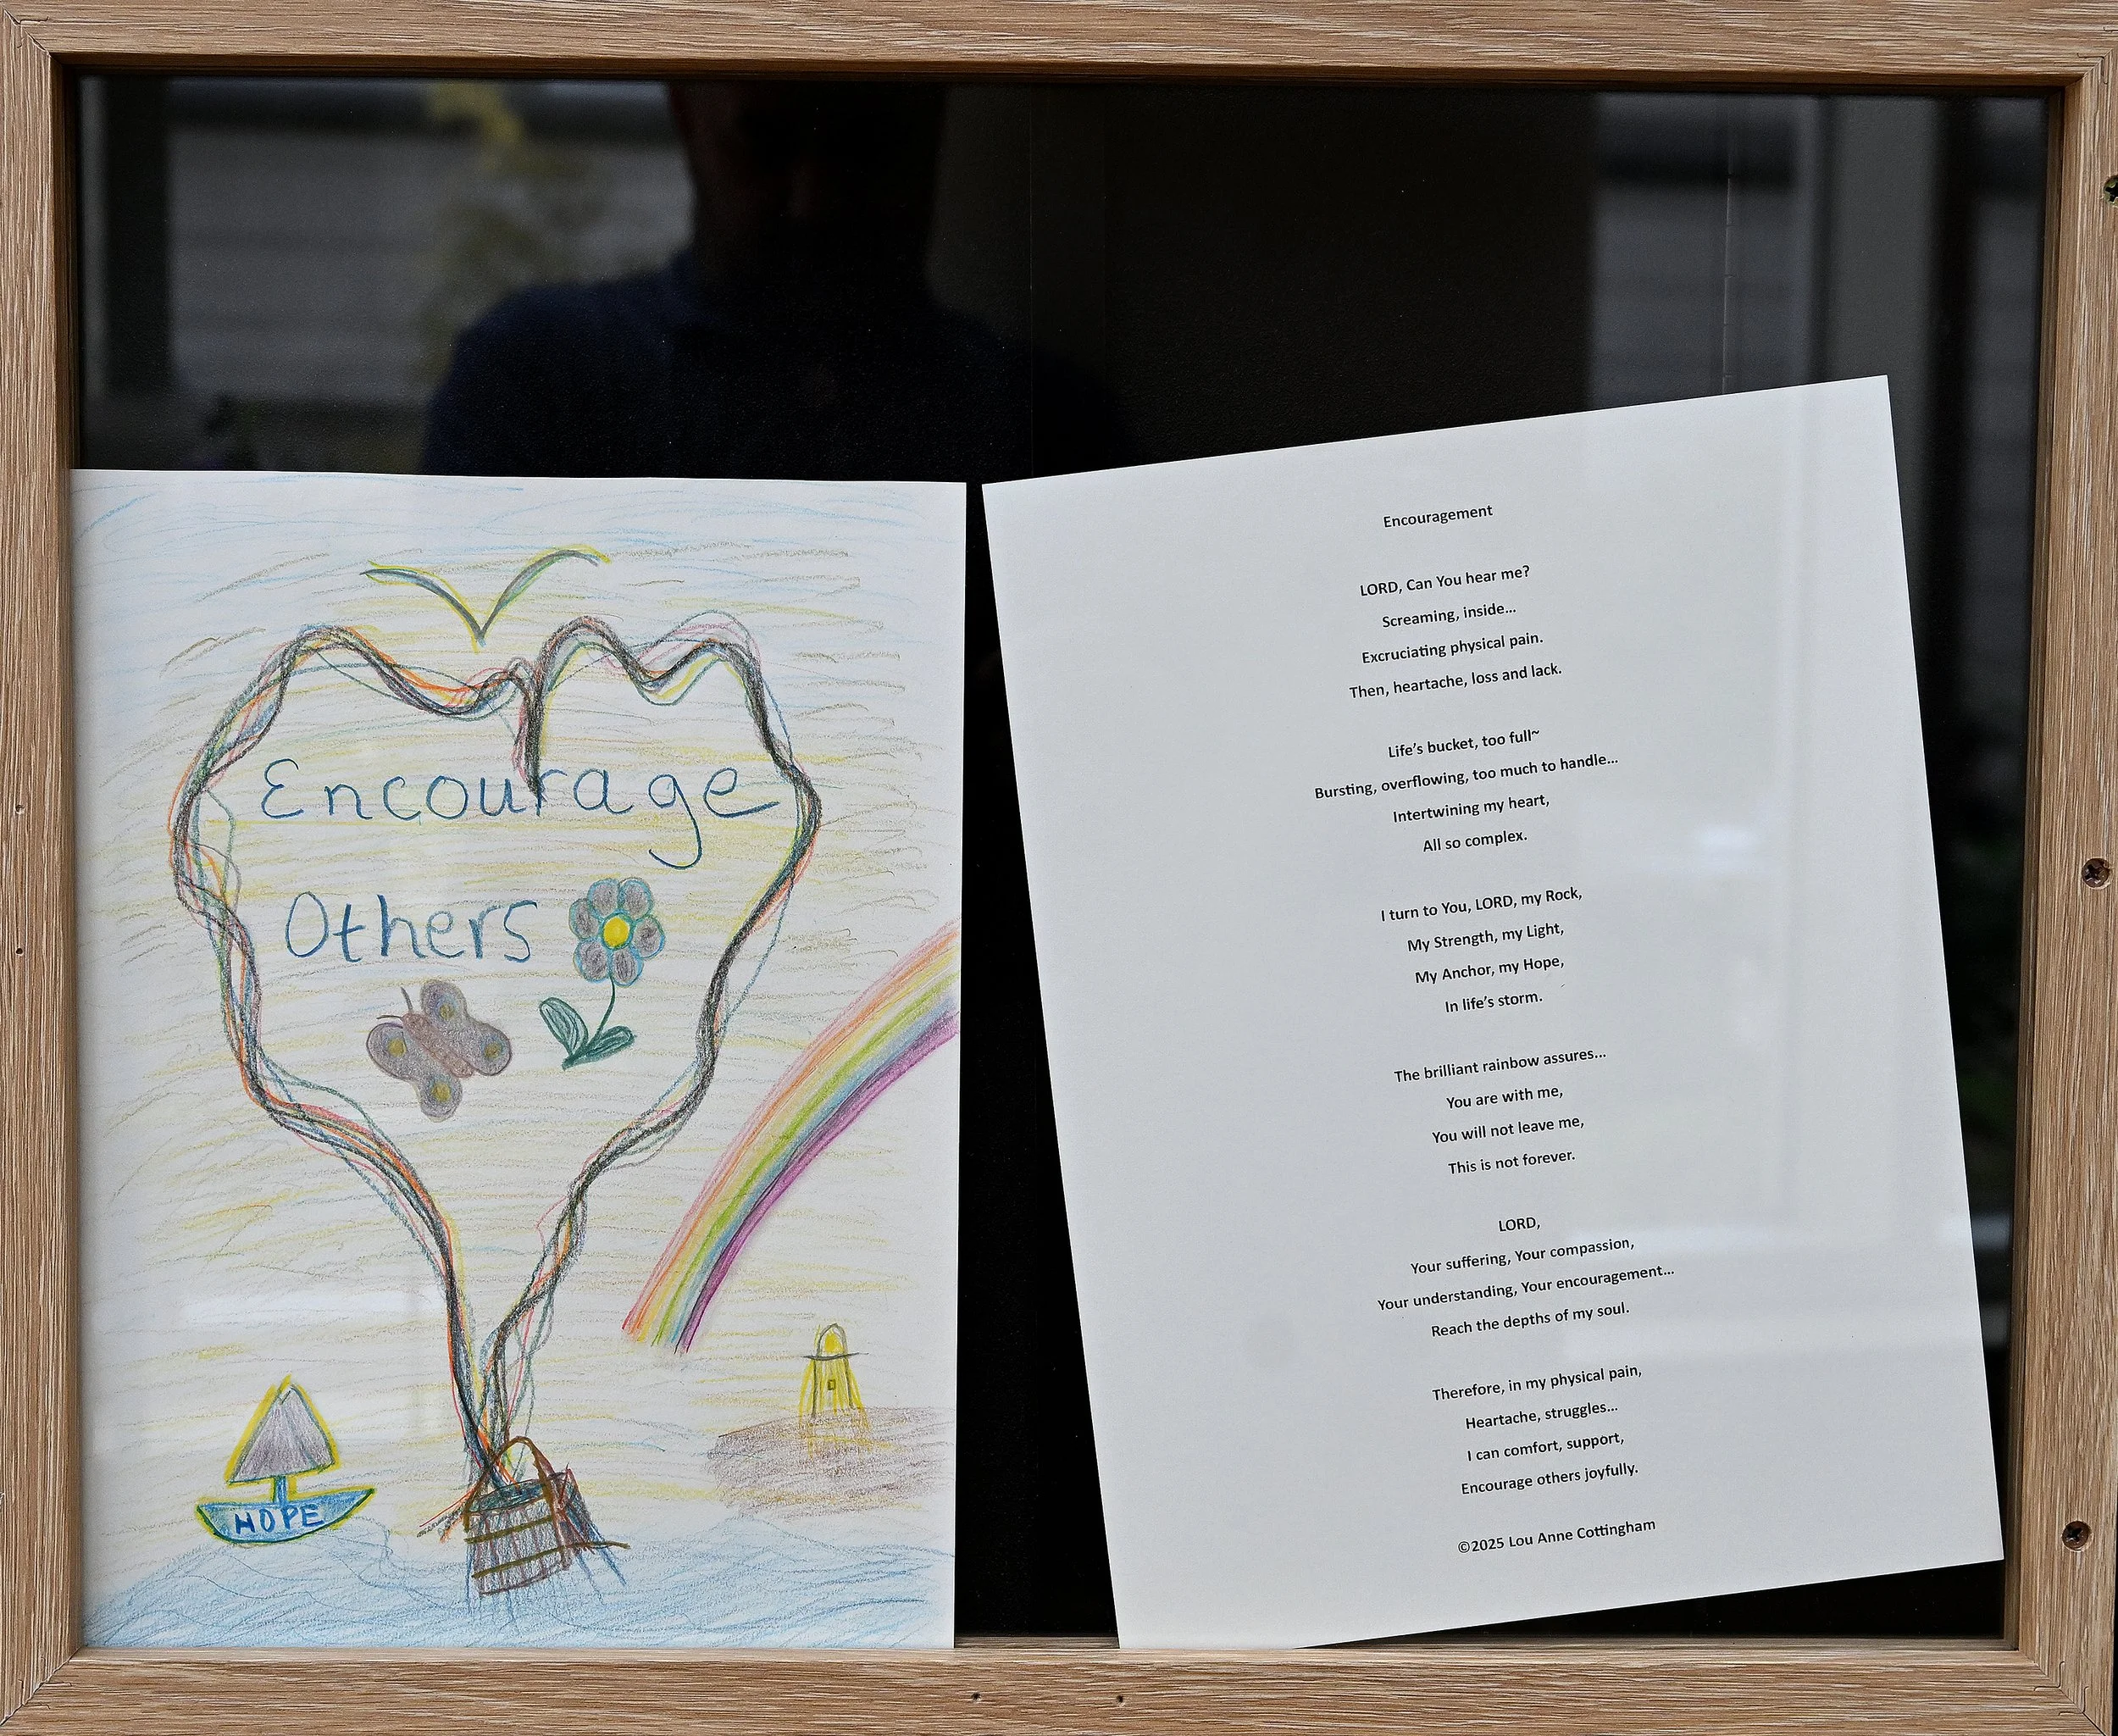 Encourage
Others
HOPE
Encouragement
LORD, Can You hear me?
Screaming, inside...
Excruciating physical pain.
Then, heartache, loss and lack.
Life's bucket, too full~
Bursting, overflowing, too much to handle...
Intertwining my heart,
All so complex.
I turn to You, LORD, my Rock,
My Strength, my Light,
My Anchor, my Hope,
In life's storm.
The brilliant rainbow assures...
You are with me,
You will not leave me,
This is not forever.
LORD,
Your suffering, Your compassion,
Your understanding, Your encouragement...
Reach the depths of my soul.
Therefore, in my physical pain,
Heartache, struggles...
I can comfort, support,
Encourage others joyfully.
©2025 Lou Anne Cottingham